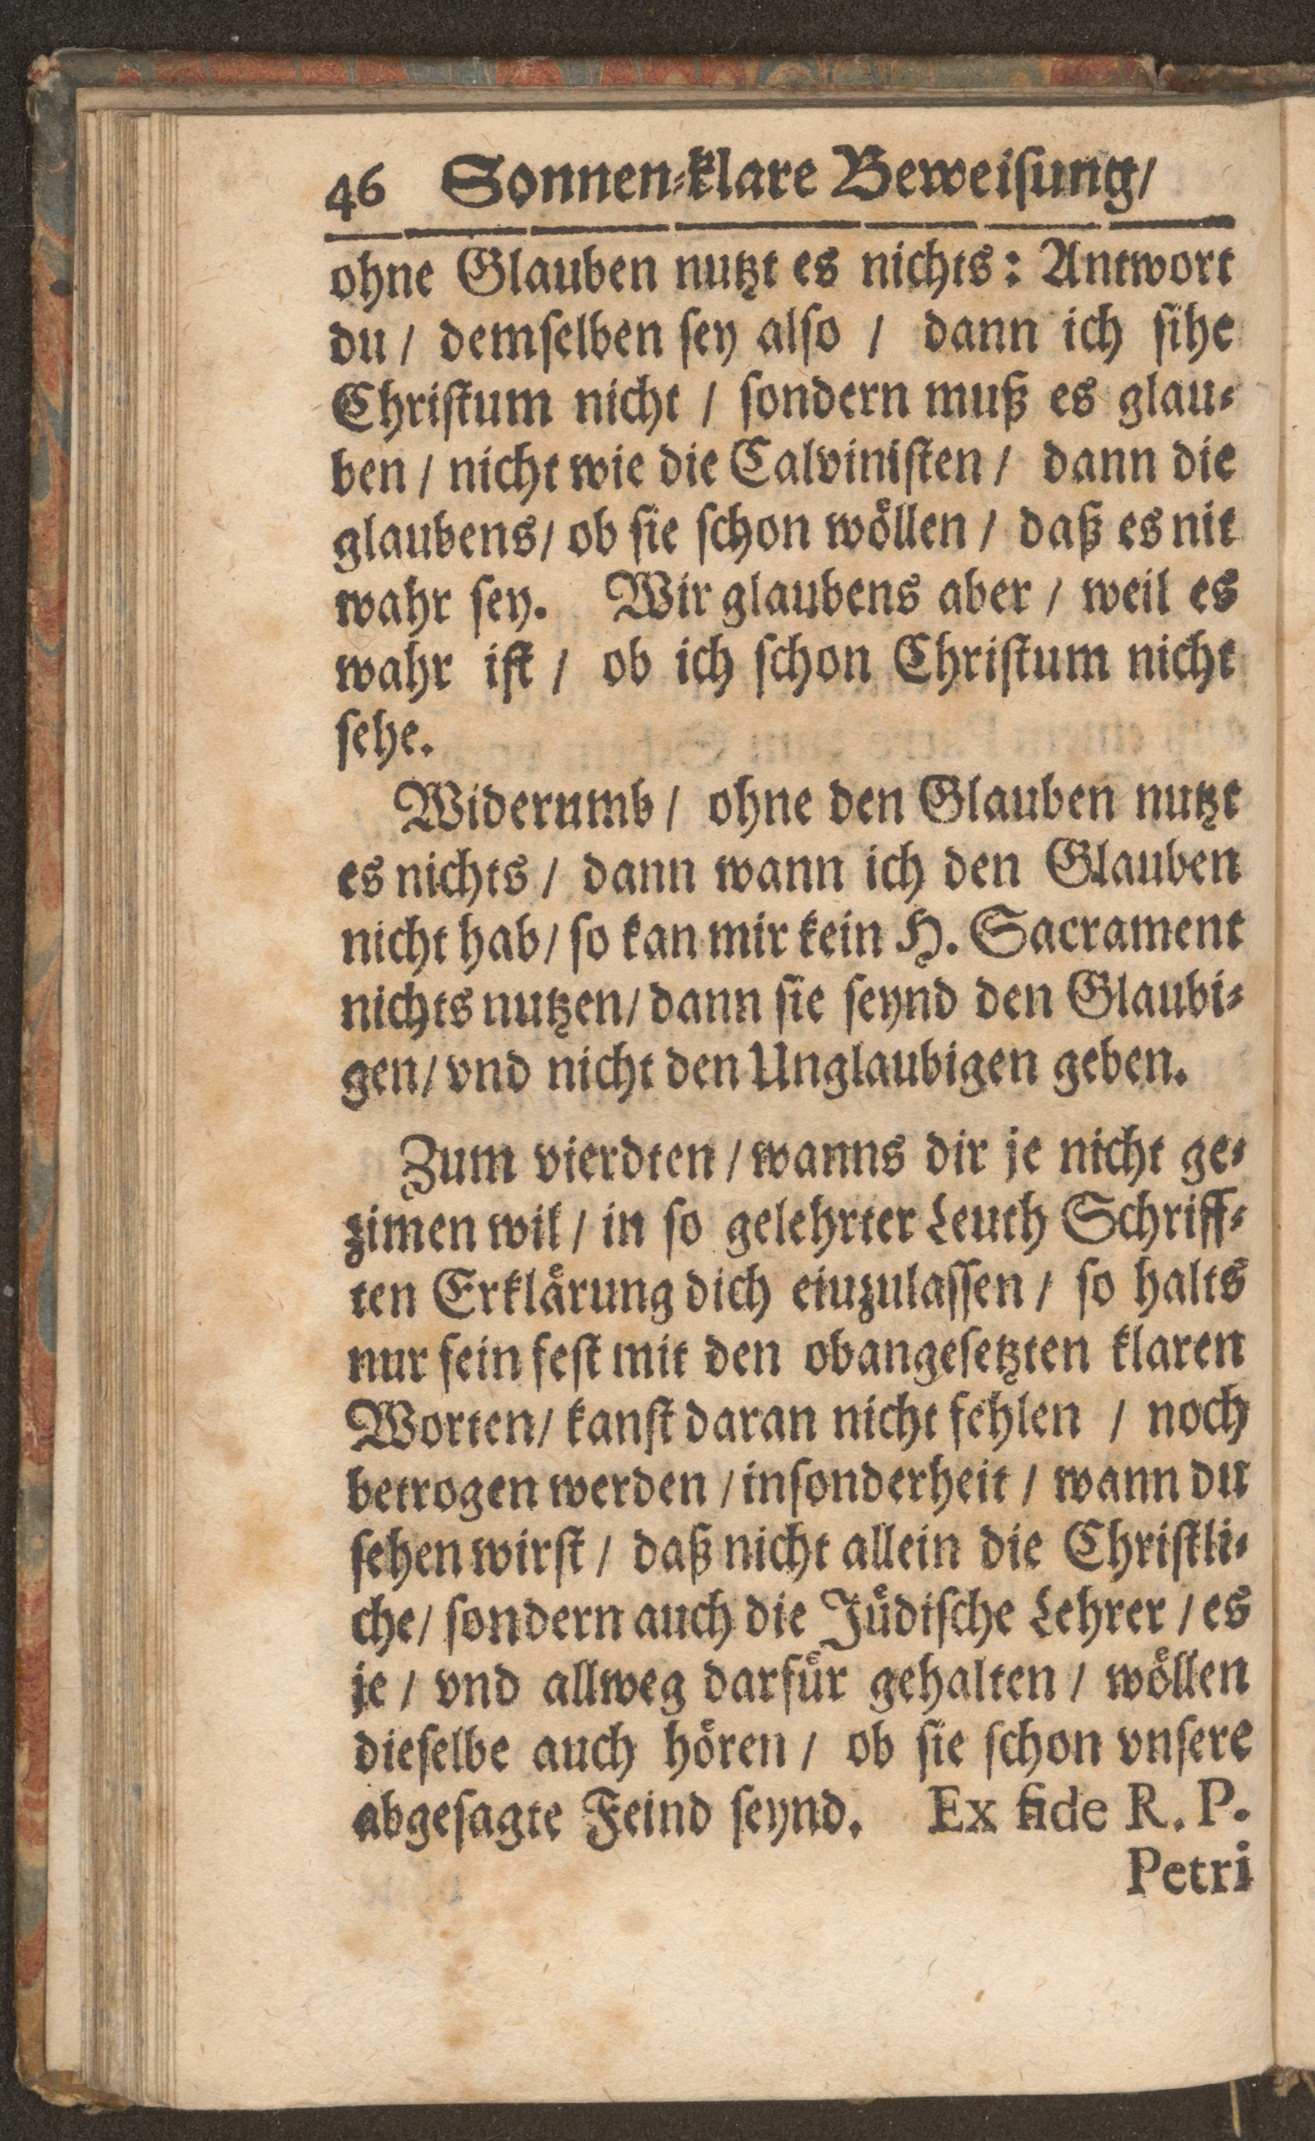 46 Sonnen-klare Beweisung/
ohne Glauben nutzt es nichts: Antwort
du/ demselben sey also / dann ich sihe
Christum nicht / sondern muß es glau-
ben / nicht wie die Calvinisten / dann die
glaubens/ ob sie schon wöllen / daß es nit
wahr sey. Wir glaubens aber / weil es
wahr ist / ob ich schon Christum nicht
sehe.
Widerumb / ohne den Glauben nutzt
es nichts / dann wann ich den Glauben
nicht hab/ so kan mir kein H. Sacrament
nichts nutzen/ dann sie seynd den Glaubi-
gen/ vnd nicht den Unglaubigen geben.
Zum vierdten / wanns dir je nicht ge-
zimen wil / in so gelehrter Leuth Schriff-
ten Erklärung dich eiuzulassen / so halts
nur fein fest mit den obangesetzten klaren
Worten/ kanst daran nicht fehlen / noch
betrogen werden / insonderheit / wann du
sehen wirst / daß nicht allein die Christli-
che/ sondern auch die Jüdische Lehrer / es
je / vnd allweg darfür gehalten / wöllen
dieselbe auch hören / ob sie schon vnsere
abgesagte Feind seynd. Ex fide R. P.
Petri